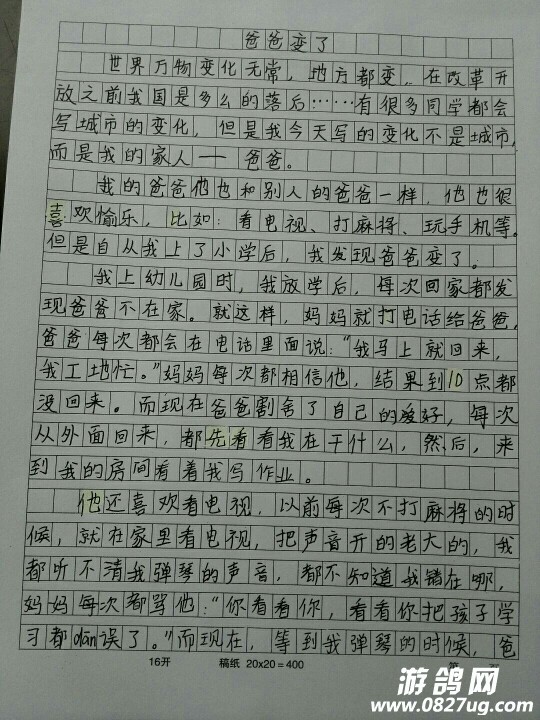 爸爸变了
世界万物变化无常,地方都变,在改革开
放之前我国是多么的落后……有很多同学都会
写城市的变化,但是我今天写的变化不是城市,
而是我的家人——爸爸。
我的爸爸他也和别人的爸爸一样,他也很
喜欢愉乐,比如:看电视、打麻将、玩手机等。
但是自从我上了小学后,我发现爸爸变了。
我上幼儿园时,我放学后,每次回家都发
现爸爸不在家。就这样,妈妈就打电话给爸爸,
爸爸每次都会在电话里面说:“我马上就回来,
我工地忙。”妈妈每次都相信他,结果到10点都
没回来。而现在爸爸割舍了自己的爱好,每次
从外面回来,都先看看我在干什么,然后,来
到我的房间看着我写作业。
他还喜欢看电视,以前每次不打麻将的时
候,就在家里看电视,把声音开的老大的,我
都听不清我弹琴的声音,都不知道我错在哪,
妈妈每次都骂他:“你看看你,看看你把孩子学
习都dān误了。”而现在,等到我弹琴的时候,爸
16开 稿纸 20x20=400 第 页
游鸽网
www.0827ug.com